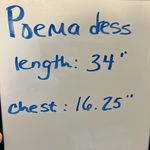 Poema dess
length: 34"
chest: 16.25"